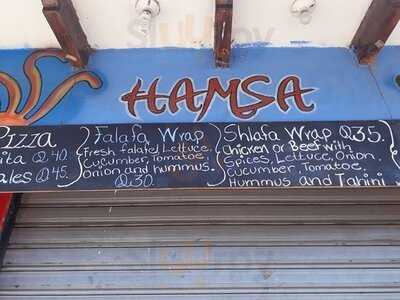 HAMSA
Pizza
ita Q.40.
ales Q.45.
Falafa Wrap
Fresh falafel, Lettuce,
Cucumber, Tomatoe,
Onion and hummus.
Q.30.
Shlafa Wrap Q.35.
Chicken or Beef with
Spices, Lettuce, Onion,
Cucumber, Tomatoe,
Hummus and Tahini